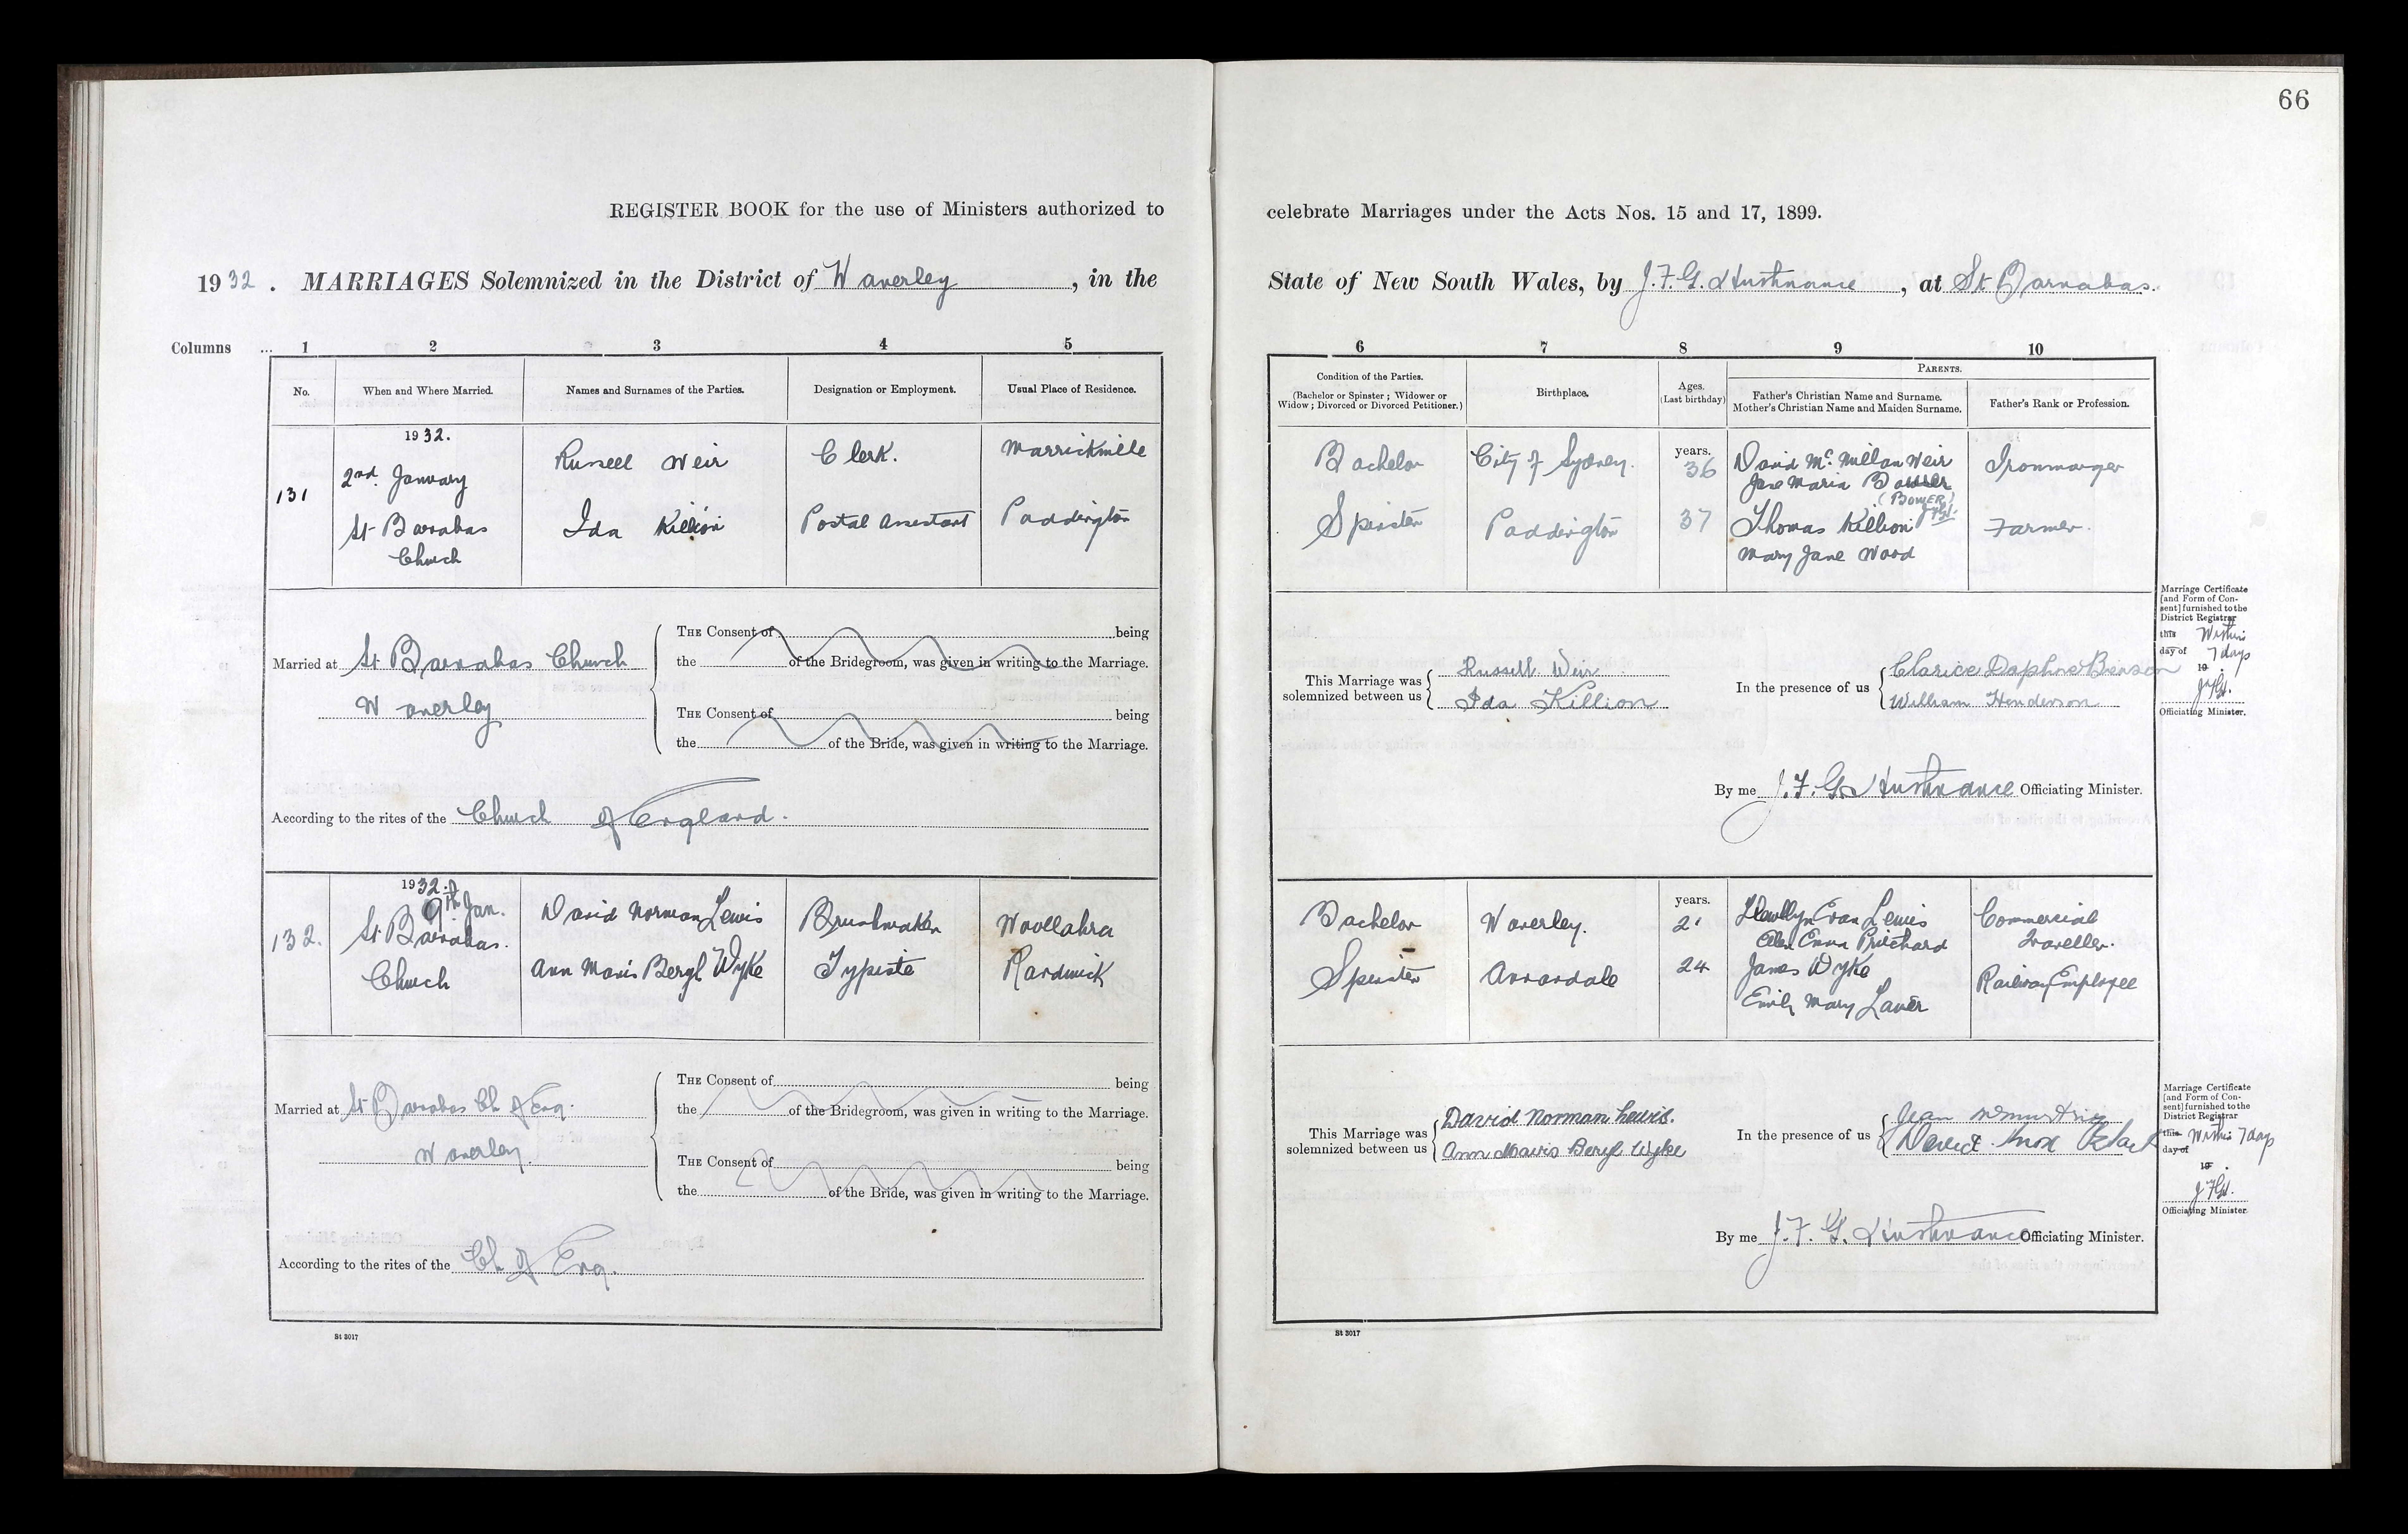 66
REGISTER BOOK for the use of Ministers authorized to celebrate Marriages under the Acts Nos. 15 and 17, 1899.
1932. MARRIAGES Solemnized in the District of Waverley, in the State of New South Wales, by J. F. G. , at St Barnabas.
Columns ... 1 2 3 4 5 6 7 8 9 10
No. When and Where Married. Names and Surnames of the Parties. Designation or Employment. Usual Place of Residence.
Condition of the Parties. (Bachelor or Spinster; Widower or Widow; Divorced or Divorced Petitioner.) Birthplace. Ages. (Last birthday) PARENTS. Father's Christian Name and Surname. Mother's Christian Name and Maiden Surname. Father's Rank or Profession.
1932.
131
2nd January
St Barnabas
Church
Russell Weir
Ida Killion
Clerk.
Postal Assistant
Marrickville
Paddington
Bachelor
Spinster
City of Sydney.
Paddington
years.
36
37
David McMillan Weir
Jane Maria
(BOWER)
Thomas Killion
Mary Jane Wood
Ironmonger
Farmer.
Married at St Barnabas Church
Waverley
THE Consent of being
the of the Bridegroom, was given in writing to the Marriage.
THE Consent of being
the of the Bride, was given in writing to the Marriage.
According to the rites of the Church of England.
This Marriage was solemnized between us
Russell Weir
Ida Killion
In the presence of us
Clarice Daphne Benson
William Henderson
By me J. F. G. Officiating Minister.
Marriage Certificate
[and Form of Con-
sent] furnished to the
District Registrar
this Within
day of 7 days
19 .
Officiating Minister.
1932.
132.
9th Jan.
St Barnabas.
Church
David Norman Lewis
Ann Mavis Beryl Wyke
Brushmaker
Typiste
Woollahra
Randwick
Bachelor
Spinster
Waverley.
Annandale
years.
21
24
Llewllyn Evan Lewis
Emma Pritchard
James Wyke
Emily Mary Laver
Commercial
Traveller.
Railway Employee
Married at St Barnabas Ch of Eng.
Waverley.
THE Consent of being
the of the Bridegroom, was given in writing to the Marriage.
THE Consent of being
the of the Bride, was given in writing to the Marriage.
According to the rites of the Ch of Eng.
This Marriage was solemnized between us
David Norman Lewis.
Ann Mavis Beryl Wyke
In the presence of us
Jean
David Knox
By me J. F. G. Officiating Minister.
Marriage Certificate
[and Form of Con-
sent] furnished to the
District Registrar
this Within 7 days
day of
19 .
Officiating Minister.
St 3017
St 3017